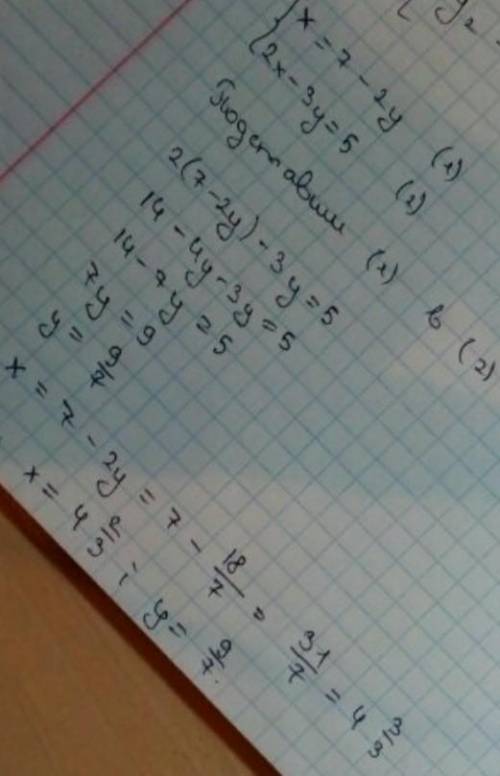 x = 7 - 2y (1)
2x - 3y = 5 (2)
Подставим (1) в (2)
2(7 - 2y) - 3y = 5
14 - 4y - 3y = 5
14 - 7y = 5
7y = 9
y = 9/7
x = 7 - 2y = 7 - 18/7 = 31/7 = 4 3/3
x = 4 ; y = 9/7.